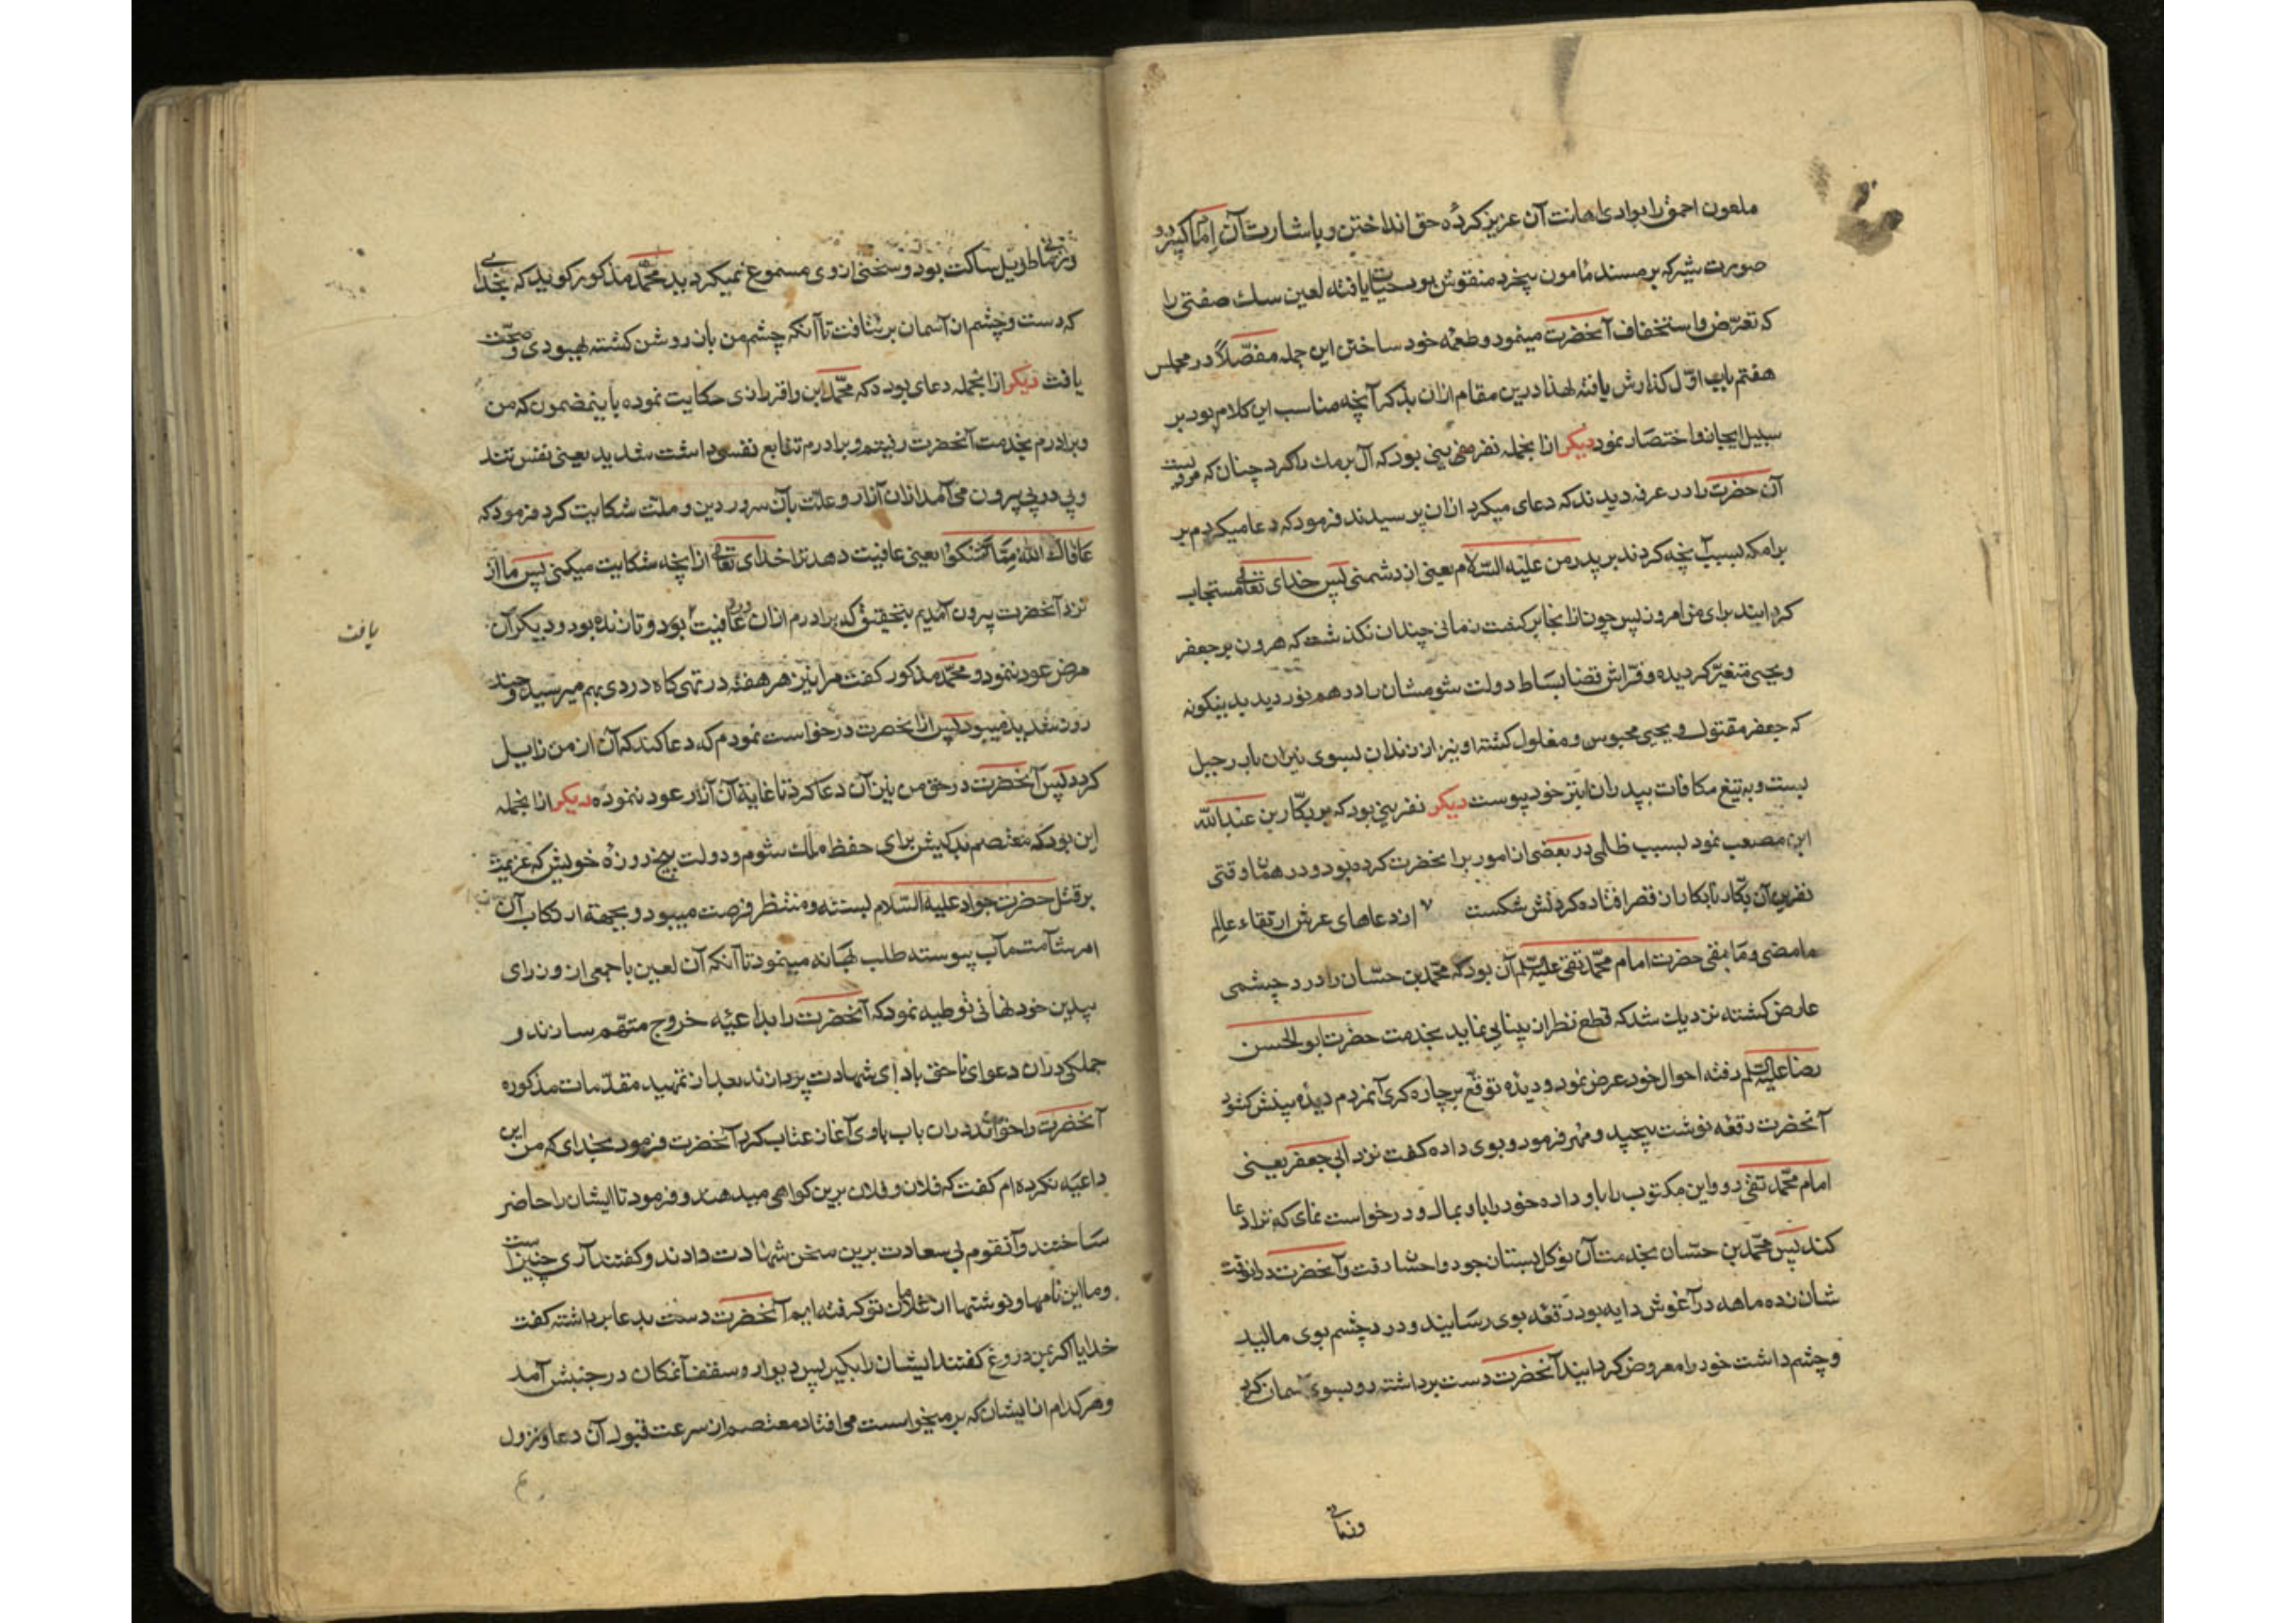 ملعون احمق را بوادی اهانت آن عزیز کرده حق انداختن و باشارت آن امام کبیر دو
صورت شیر که بر مسند مامون بیخرد منقوش بود حیات یافته لعین سک صفتی را
که تعرّض و استخفاف آنحضرت مینمود طعمه خود ساختن این جمله مفصّلاً در مجلس
هفتم باب اوّل کذارش یافته لهذا درین مقام ازان بذکر آنچه مناسب این کلام بود بر
سبیل ایجاز و اختصار نمود دیکر ازانجمله نفرینی بود که آل برمک را کرد چنان که مرویست
آن حضرت را در عرفه دیدند که دعای میکرد ازان پرسیدند فرمود که دعا میکردم بر
برامکه بسبب آنچه کردند بر پدر من علیه السّلام یعنی از دشمنی پس خدای تعالی مستجاب
کردانید برای من امروز پس چون ازانجا برکشت زمانی چندان نکذشت که هرون بر جعفر
و یحیی متغیّر کردیده و فرّاش قضا بساط دولت شومشان را درهم نوردید بدینکونه
که جعفر مقتول و یحیی محبوس و مغلول کشته او نیز از زندان بسوی نیران بار رحیل
بست و به تیغ مکافات بپدران ابتر خود پیوست دیکر نفرینی بود که بر بکّار بن عبدالله
ابن مصعب نمود بسبب ظلمی در بعضی از امور بر آنحضرت کرده بود و در همان وقتی
نفرین آن بکّار نابکار از قصر افتاده کردنش شکست ٧ از دعاهای عرش ارتقاء عالم
مامضی و ما بقی حضرت امام محمّد تقی علیه السلم آن بود که محمّد بن حسّان را درد چشمی
عارض کشته نزدیک شد که قطع نظر از بینایی نماید بخدمت حضرت ابوالحسن
رضا علیه السلم رفته احوال خود عرض نمود و دیده توقّع بر چاره کری آنمردم دیده بینش کشود
آنحضرت رقعه نوشت پیچید و مهر فرمود و بوی داده کفت نزد ابی جعفر یعنی
امام محمّد تقی رو و این مکتوب را باو داده خود را باو بمال و درخواست نمای که ترا دعا
کند پس محمّد بن حسّان بخدمت آن نوکل بستان جود و احسان رفت و آنحضرت درانوقت
شانزده ماهه در آغوش دایه بود رقعه بوی رسانید و درد چشم بوی مالید
و چشم داشت خود را معروض کردانید آنحضرت دست برداشته رو بسوی آسمان کرد
وزمانی
وزمانی طویل ساکت بود و سخنی از وی مسموع نمیکردید محمّد مذکور کوید که بخدای
که دست و چشم از آسمان برنتافت تا آنکه چشم من بان روشن کشته بهبودی و صحّت
یافت دیکر ازانجمله دعای بود که محمّد ابن واقر رازی حکایت نموده باینمضمون که من
و برادرم بخدمت آنحضرت رفتیم و برادرم تتابع نفسی داشت شدید یعنی نفس تند
و پی در پی بیرون می آمد ازان آزار و علّت بآن سرور دین و ملّت شکایت کرد فرمود که
عافاک الله ممّا تشکوا یعنی عافیت دهد ترا خدای تعالی ازانچه شکایت میکنی پس ما از
نزد آنحضرت بیرون آمدیم بتحقیق که برادرم ازان درد عافیت بود و تا زنده بود دیکر آن
یافت
مرض عود ننمود و محمّد مذکور کفت مرا نیز هر هفته در تهی کاه دردی بهم میرسید و چند
روز شدید میبود پس ازانحضرت درخواست نمودم که دعا کند که آن از من زایل
کردد پس آنحضرت در حق من نیز آن دعا کرد تا غایة آن آزار عود ننموده دیکر ازانجمله
این بود که معتصم بدکیش برای حفظ ملک شوم و دولت پنج روزه خویش که عزیمت
بر قتل حضرت جواد علیه السّلام بسته و منتظر فرصت میبود و بجهة ارتکاب آن
امر شآمت مآب پیوسته طلب بهانه مینمود تا آنکه آن لعین با جمعی از وزرای
بیدین خود نهانی توطیه نمود که آنحضرت را بداعیّه خروج متهّم سازند و
جملکی دران دعوای ناحق بادای شهادت پردازند بعد از تمهید مقدّمات مذکوره
آنحضرت را خوانده دران باب باوی آغاز عتاب کرد آنحضرت فرمود بخدای که من این
داعیّه نکرده ام کفت که فلان و فلان برین کواهی میدهند و فرمود تا ایشان را حاضر
ساختند و آنقوم بی سعادت برین سخن شهادت دادند و کفتند آری چنین است
و ما این نامها و نوشتها از غلامان تو کرفته ایم آنحضرت دست بدعا برداشته کفت
خدایا اکر بمن دروغ کفتند ایشان را بکیر پس دیوار و سقف آنمکان در جنبش آمد
و هر کدام از ایشان که بر میخواست می افتاد معتصم از سرعت قبول آن دعا و نزول